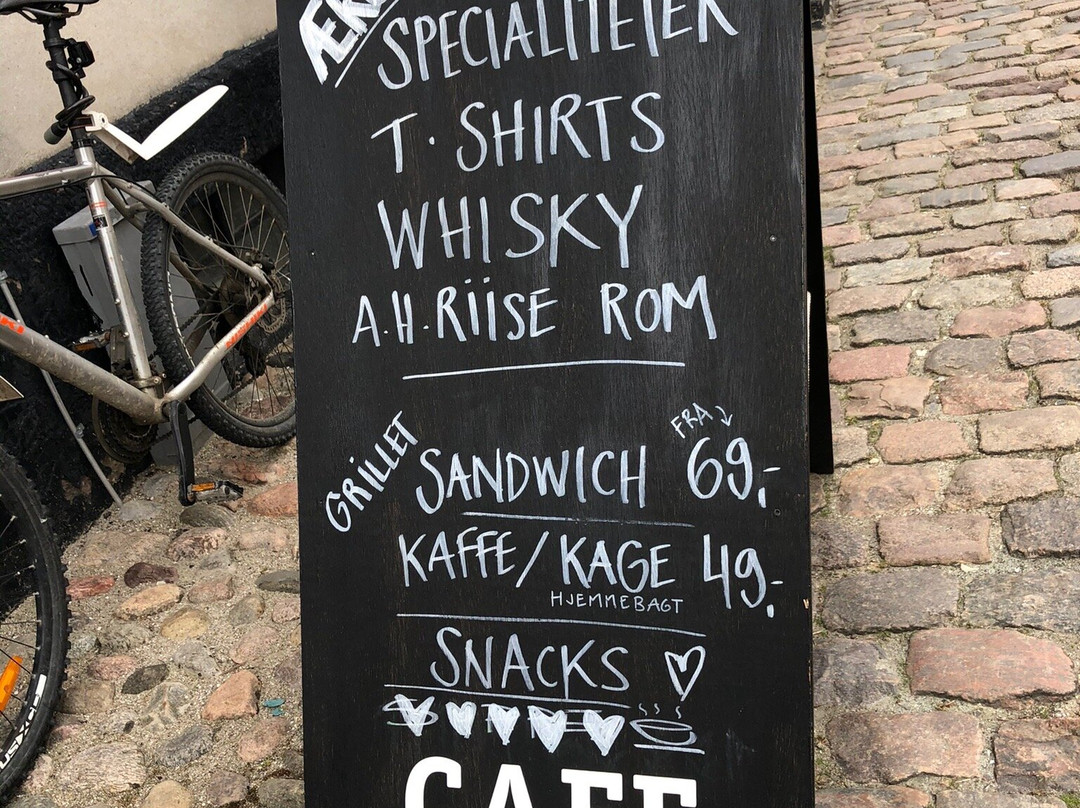 SPECIALITETER
T·SHIRTS
WHISKY
A.H.RIISE ROM
GRILLET SANDWICH FRA 69,-
KAFFE/KAGE 49,-
HJEMMEBAGT
SNACKS
CAFE